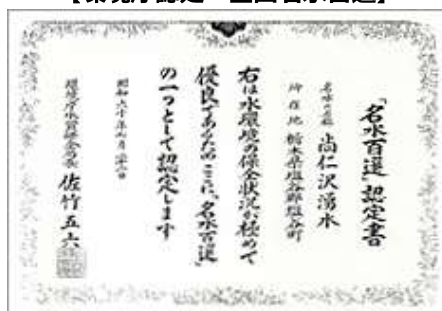 「名水百選」認定書
名水の名称 尚仁沢湧水
所在地 栃木県塩谷郡塩谷町
右は水環境の保全状況が極めて
優良であるためここに「名水百選」
の一つとして認定します
昭和六十年
環境庁水質保全局長 佐竹五六